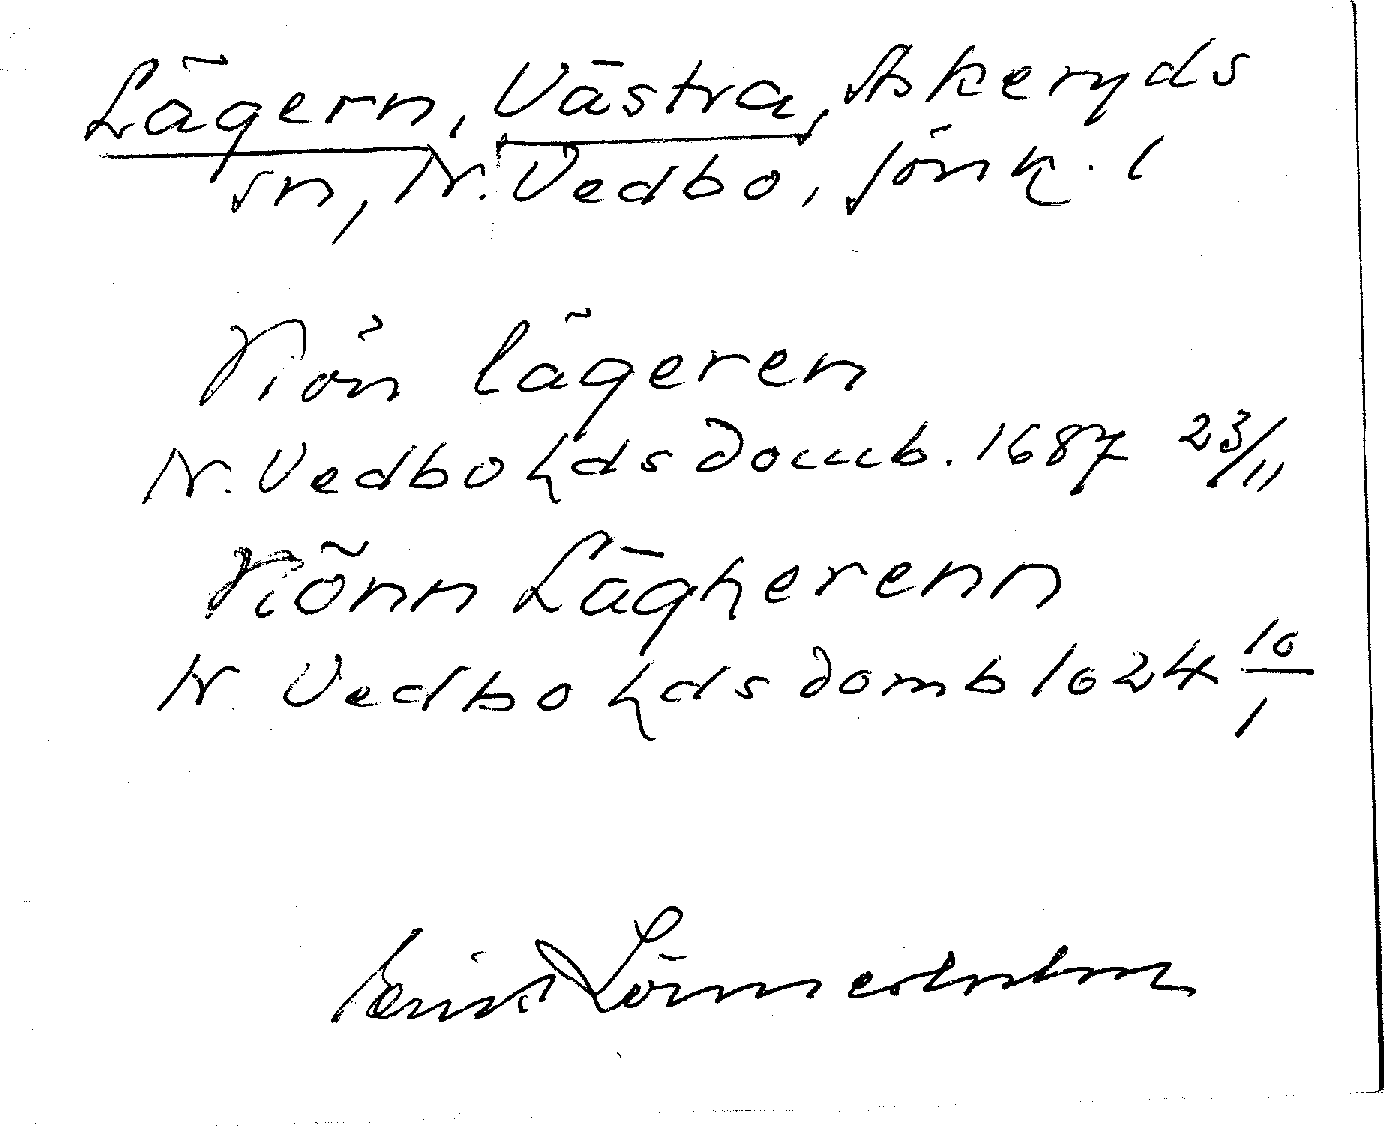 Lägern, Västra, Askeryds
sn, N. Vedbo, Jönk. l
Siön lägeren
N. Vedbo hds domb. 1687 23/11
Siönn Lägherenn
N. Vedbo hds domb 1624 10/1